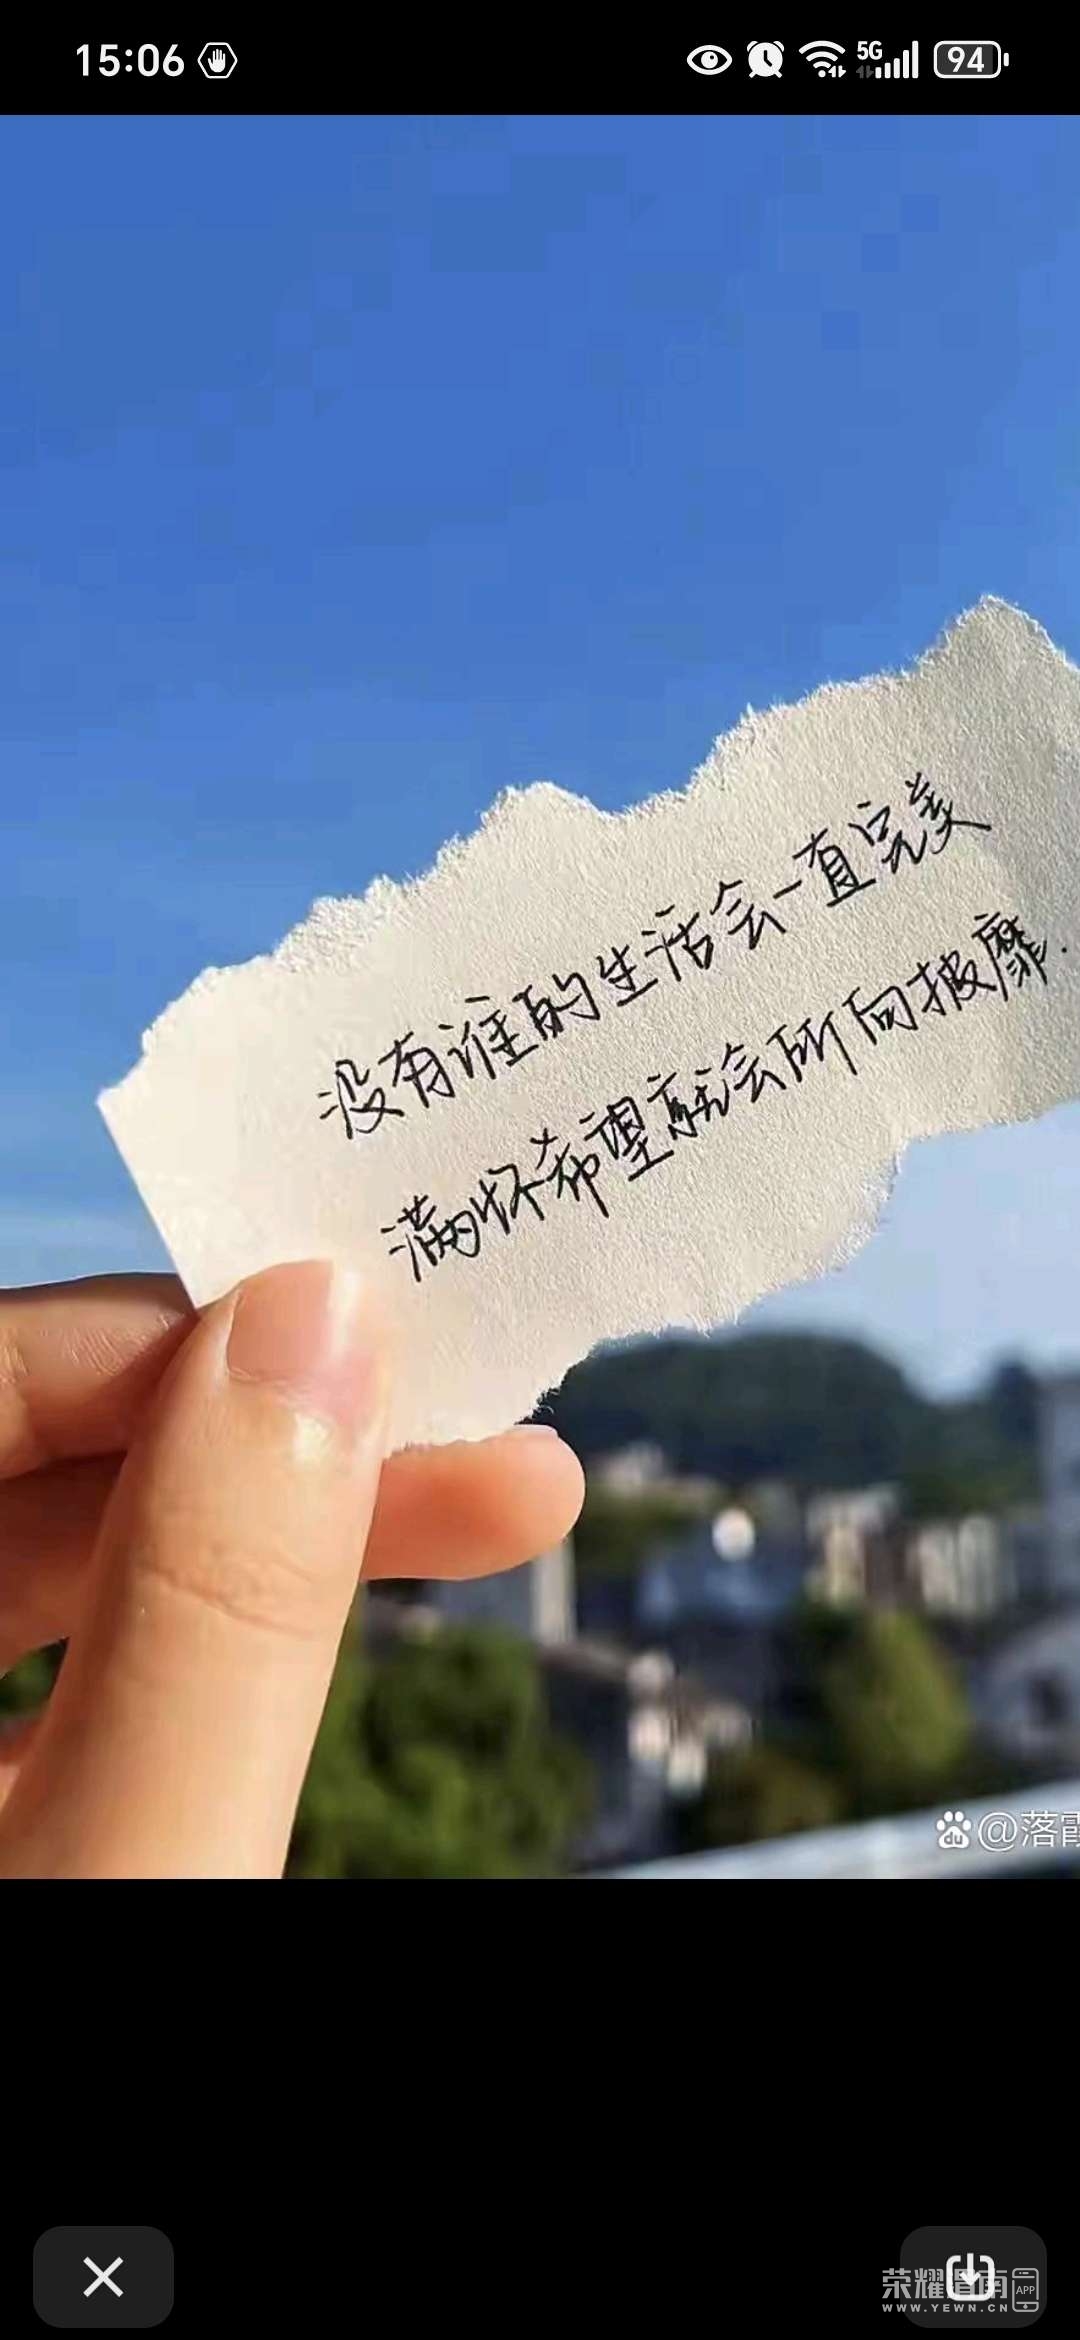 15:06
5G
94
没有谁的生活会一直完美
满怀希望就会所向披靡.
@落霞
荣耀指南
APP
WWW.YEWN.CN